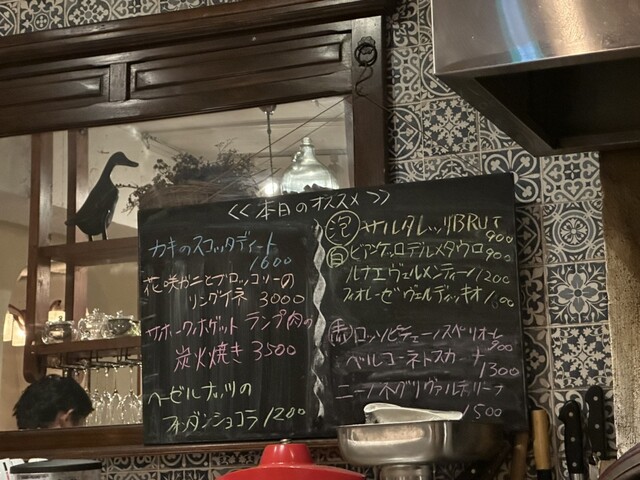 <<本日のオススメ>>
カキのスコッタディート
1600
花咲ガニとブロッコリーの
リングイネ 3000
サホークホゲット ランプ肉の
炭火焼き 3500
ヘーゼルナッツの
フォンダンショコラ 1200
泡 サルタレッリBRUT
900
白 ビアンケッロデルメタウロ 900
ルナエヴェルメンティーノ 1200
フィオレーゼヴェルディッキオ
ロッソピチェーノスペリオーレ
900
ベルコーネトスカーナ
1300
ニーノネグリヴァルテリーナ
1500